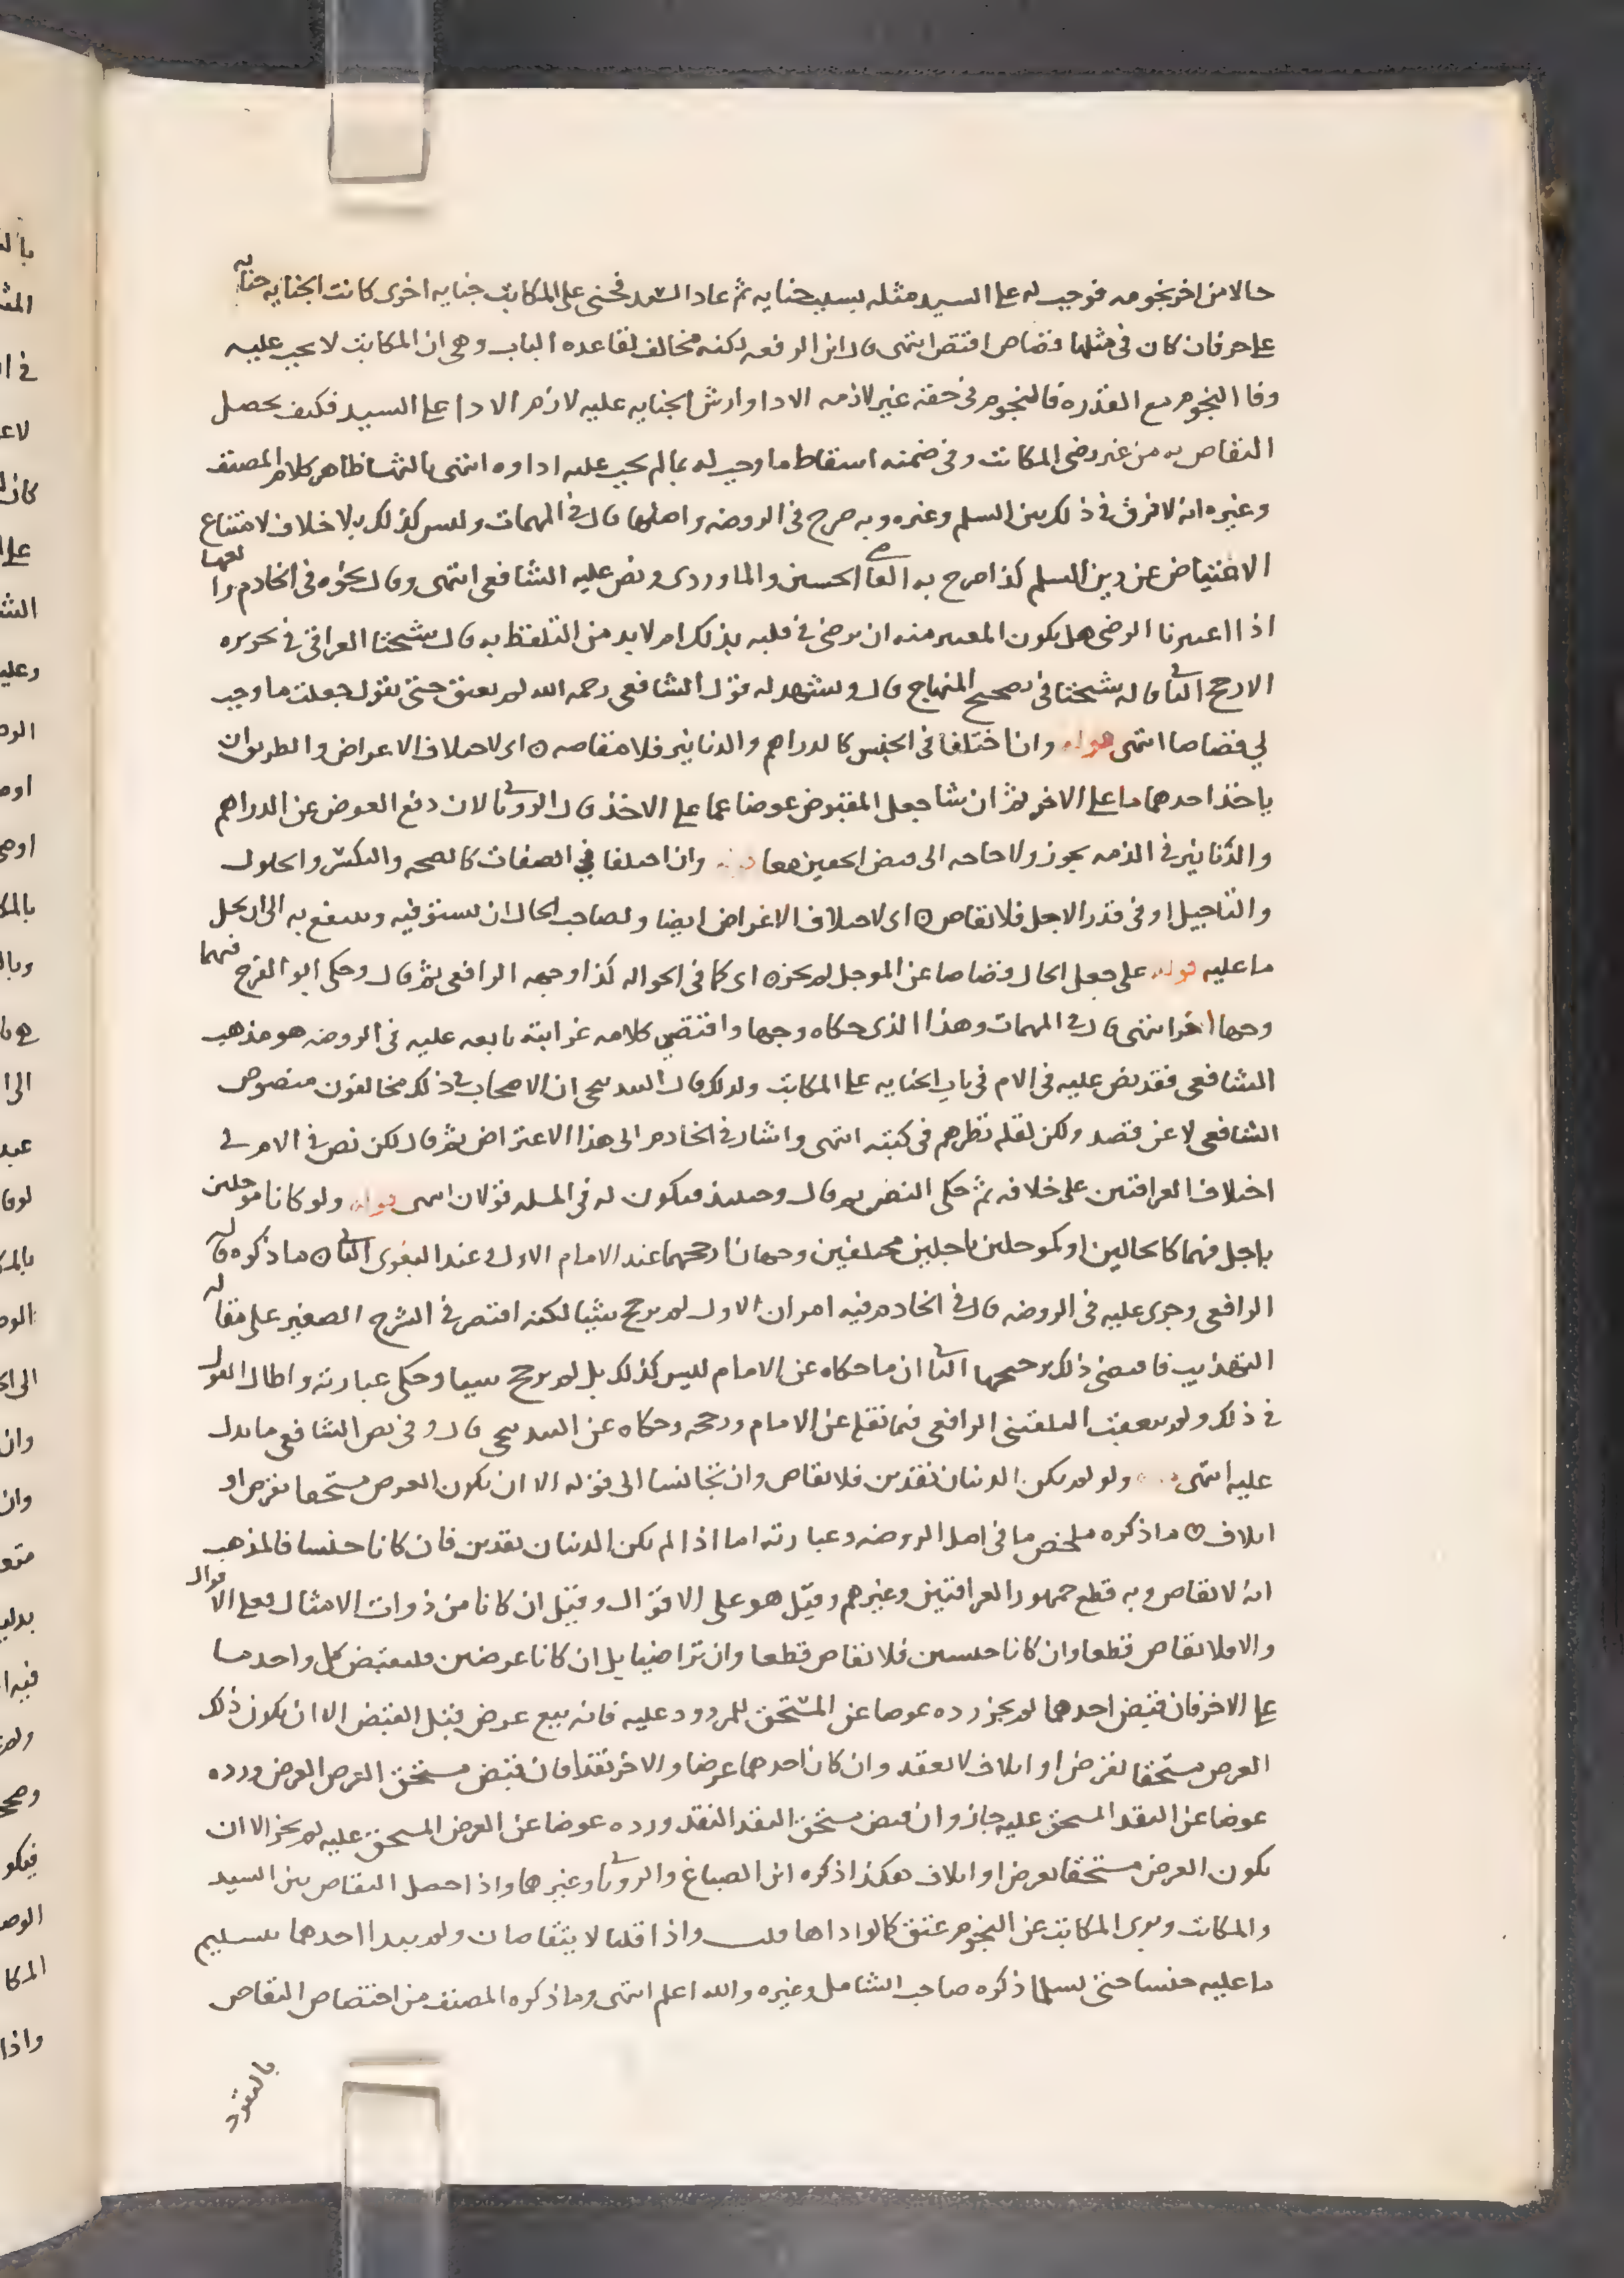 حالا من اخر نجومه فوجب له على السيد مثله بسبب جنايه ثم عاد السيد فجنى على المكاتب جنايه اخرى كانت الجنايه جنايه
على حر فان كان في مثلها قصاص اقتص انتهى قال ابن الرفعه لكنه مخالف لقاعده الباب وهي ان المكاتب لا يجب عليه
وفا النجوم مع القدره فالنجوم في حقه غير لازمه الادا وارش الجنايه عليه لازم الادا على السيد فكيف يحصل
التقاص به من غير رضى المكاتب وفي ضمنه اسقاط ما وجب له بما لم يجب عليه اداوه انتهى ظاهر كلام المصنف
وغيره انه لا فرق في ذلك بين السلم وغيره وبه صرح في الروضه واصلها قال في المهمات وليس كذلك بلا خلاف لامتناع
الاعتياض عن دين السلم كذا صرح به القاضي الحسين والماوردي ونص عليه الشافعي انتهى وقال نحوه في الخادم
اذا اعتبرنا الرضى هل يكون المعتبر منه ان يرضى في قلبه بذلك ام لابد من التلفظ به قال شيخنا العراقي في تحريره
الارجح الثاني قاله شيخنا في تصحيح المنهاج قال ويشهد له قول الشافعي رحمه الله لم يعتق حتى يقول جعلت ما وجب
لي قصاصا انتهى قوله وان اختلفا في الجنس كالدراهم والدنانير فلا مقاصه ه اي لاختلاف الاغراض والطريق ان
ياخذ احدهما ما على الاخر ثم ان شا جعل المقبوض عوضا عما على الاخذ قال الروياني لان دفع العوض عن الدراهم
والدنانير في الذمه يجوز ولا حاجه الى قبض الحقين معا قوله وان اختلفا في الصفات كالصحه والتكسر والحلول
والتاجيل او في قدر الاجل فلا تقاص ه اي لاختلاف الاغراض ايضا ولصاحب الحال ان يستوفيه وينتفع به الى ان يحل
ما عليه قوله على جعل الحال قصاصا عن الموجل لم يجز ه اي كما في الحواله كذا وجهه الرافعي ثم قال وحكى ابو الفرج فيهما
وجها اخر انتهى قال في المهمات وهذا الذي حكاه وجها واقتضى كلامه غرابته تابعه عليه في الروضه هو مذهب
الشافعي فقد نص عليه في الام في باب الجنايه على المكاتب ولذلك قال البندنيجي ان الاصحاب في ذلك مخالفون منصوص
الشافعي لا عن قصد ولكن لقله نظرهم في كتبه انتهى واشار في الخادم الى هذا الاعتراض ثم قال لكن نص في الام في
اختلاف العراقيين على خلافه ثم حكى النص ثم قال وحينئذ فيكون له في المسله قولان انتهى قوله ولو كانا موجلين
باجل فهما كالحالين او كموجلين باجلين مختلفين وجهان ارجحهما عند الامام الاول وعند البغوي الثاني ه ما ذكره قاله
الرافعي وجرى عليه في الروضه قال في الخادم فيه امران الاول لم يرجح شيئا لكنه اقتصر في الشرح الصغير على مقاله
التهذيب فاقتضى ذلك ترجيحها الثاني ان ما حكاه عن الامام ليس كذلك بل لم يرجح شيئا وحكى عبارته واطال القول
في ذلك ولم يتعقب البلقيني الرافعي فيما نقله عن الامام ورجحه وحكاه عن البندنيجي قال وفي نص الشافعي ما يدل
عليه انتهى قوله ولو لم يكن الدينان نقدين فلا تقاص وان تجانسا الى قوله الا ان يكون العرض مستحقا بقرض او
اتلاف ه ما ذكره ملخص ما في اصل الروضه وعبارته اما اذا لم يكن الدينان نقدين فان كانا جنسا فالمذهب
انه لا تقاص وبه قطع جمهور العراقيين وغيرهم وقيل هو على الاقوال وقيل ان كانا من ذوات الامثال فعلى الاقوال
والا فلا تقاص قطعا وان كانا جنسين فلا تقاص قطعا وان تراضيا بل ان كانا عرضين فليقبض كل واحد ما
على الاخر فان قبض احدهما لم يجز رده عوضا عن المستحق للمردود عليه فانه بيع عرض قبل القبض الا ان يكون ذلك
العرض مستحقا بقرض او اتلاف لا بعقد وان كان احدهما عرضا والاخر نقدا فان قبض مستحق العرض العرض ورده
عوضا عن النقد المستحق عليه جاز وان قبض مستحق النقد النقد ورده عوضا عن العرض المستحق عليه لم يجز الا ان
يكون العرض مستحقا بقرض او اتلاف هكذا ذكره ابن الصباغ والروياني وغيرهما واذا حصل التقاص بين السيد
والمكاتب وبرى المكاتب عن النجوم عتق كما لو اداها قلت واذا قلنا لا يتقاصان ولم يبدا احدهما بتسليم
ما عليه حبسا حتى يسلما ذكره صاحب الشامل وغيره والله اعلم انتهى وما ذكره المصنف من اختصاص التقاص
بالنقود